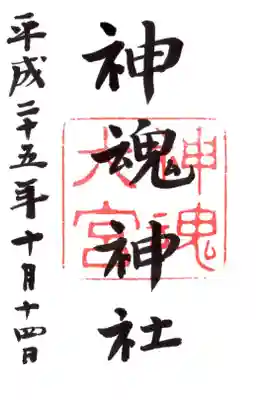 神魂神社
神魂
大宮
平成二十五年十月十四日